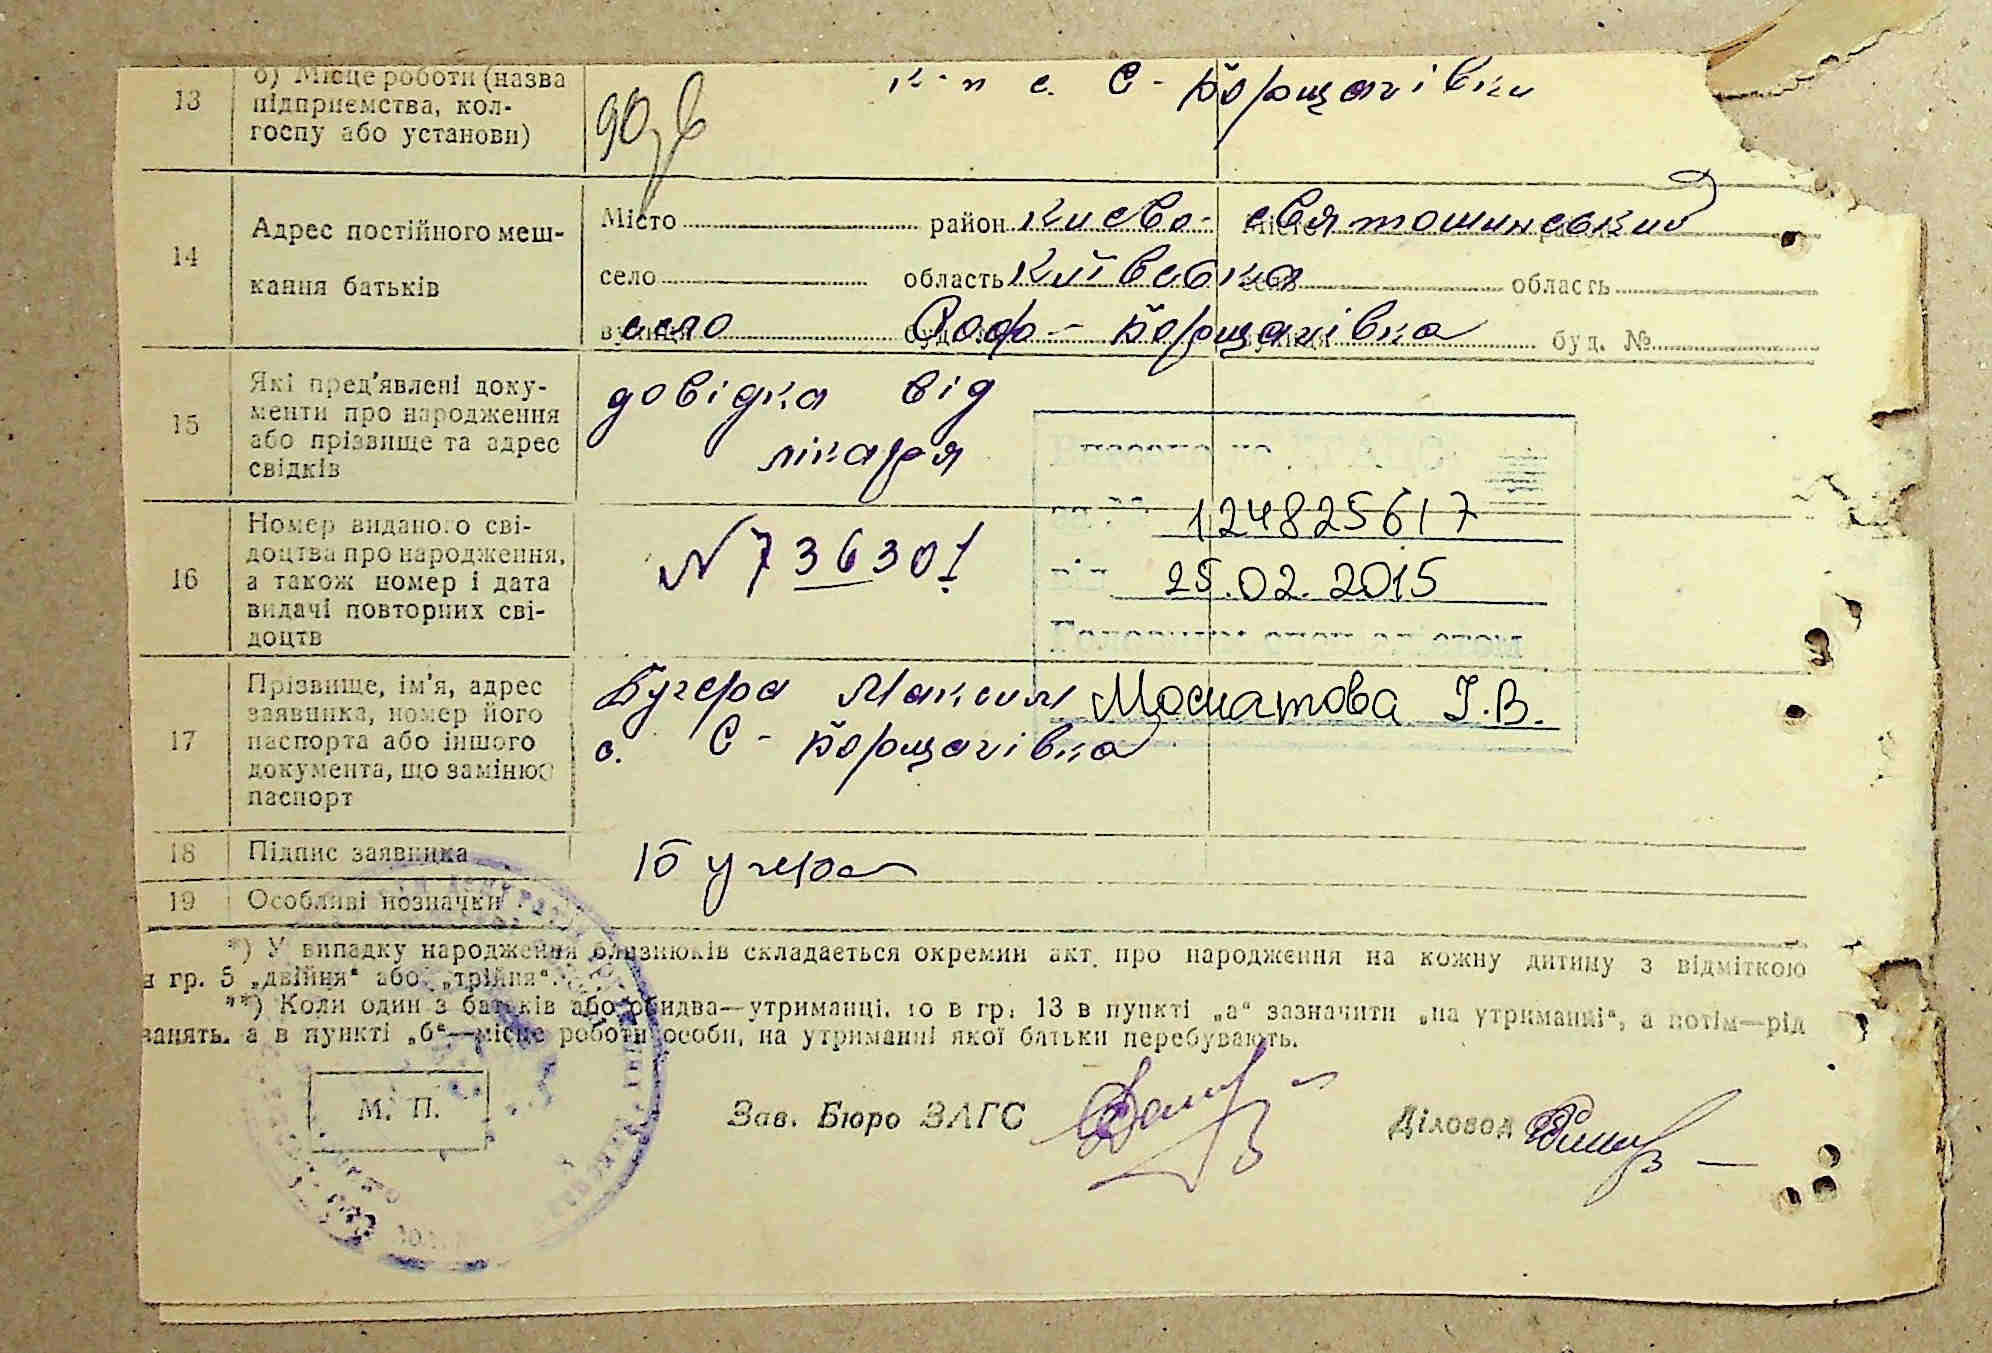 13
б) Місце роботи (назва
підприємства, кол-
госпу або установи)
к-п с. С-Борщагівки
14
Адрес постійного меш-
кання батьків
Місто район Києво-Святошинський
село область Київська область
село Соф-Борщагівка буд. №
15
Які пред'явлені доку-
менти про народження
або прізвище та адрес
свідків
довідка від
лікаря
16
Номер виданого сві-
доцтва про народження,
а також номер і дата
видачі повторних сві-
доцтв
N 736301
124825617
25.02.2015
17
Прізвище, ім'я, адрес
заявника, номер його
паспорта або іншого
документа, що замінює
паспорт
Бугера Максим
с. С-Борщагівка
І.В.
18
Підпис заявника
Бугера
19
Особливі позначки
*) У випадку народження близнюків складається окремий акт про народження на кожну дитину з відміткою
гр. 5 „двійня“ або „трійня“.
**) Коли один з батьків або обидва—утриманці, то в гр. 13 в пункті „а“ зазначити „на утриманні“, а потім—рід
занять, а в пункті „б“—місце роботи особи, на утриманні якої батьки перебувають.
М. П.
Зав. Бюро ЗАГС
Діловод